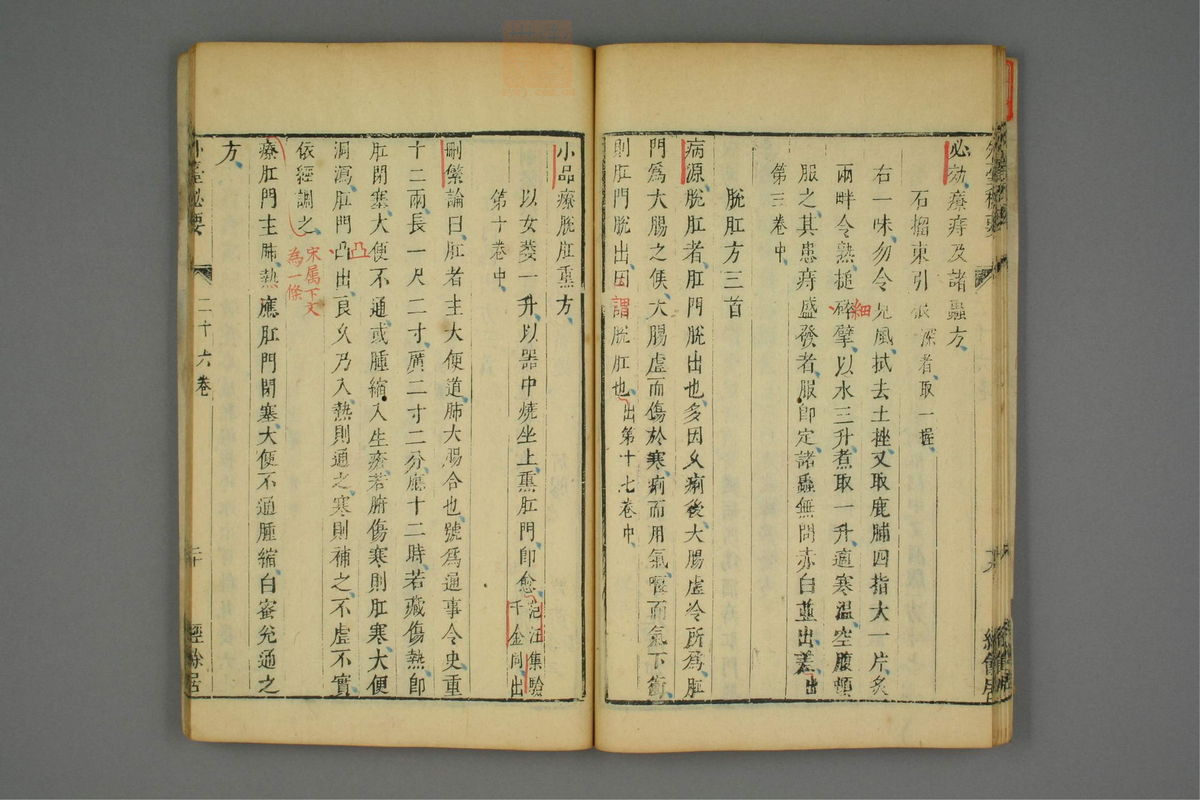 必効療痔及諸蟲方
石榴東引根深者取一握
右一味勿令見風拭去土挫又取鹿脯四指大一片炙
兩畔令熟搥碎擘以水三升煮取一升適寒溫空腹頓
細
服之其患痔盛發者服即定諸蟲無問赤白並出差出
第三卷中
脫肛方三首
病源脫肛者肛門脫出也多因久痢後大腸虛冷所為肛
門為大腸之候大腸虛而傷於寒痢而用氣㖒而氣下衝
則肛門脫出因謂脫肛也出第十七卷中
小品療脫肛熏方
以女萎一升以器中燒坐上熏肛門即愈范汪集驗
千金同出
第十卷中
刪繁論曰肛者主大便道肺大腸合也號為通事令史重
十二兩長一尺二寸廣二寸二分應十二時若藏傷熱即
肛閉塞大便不通或腫縮入生瘡若腑傷寒則肛寒大便
洞瀉肛門凸出良久乃入熱則通之寒則補之不虛不實
凸
依經調之
宋屬下文
為一條
療肛門主肺熱應肛門閉塞大便不通腫縮白蜜兌通之
方
外臺秘要
二十六卷
二十
經餘居